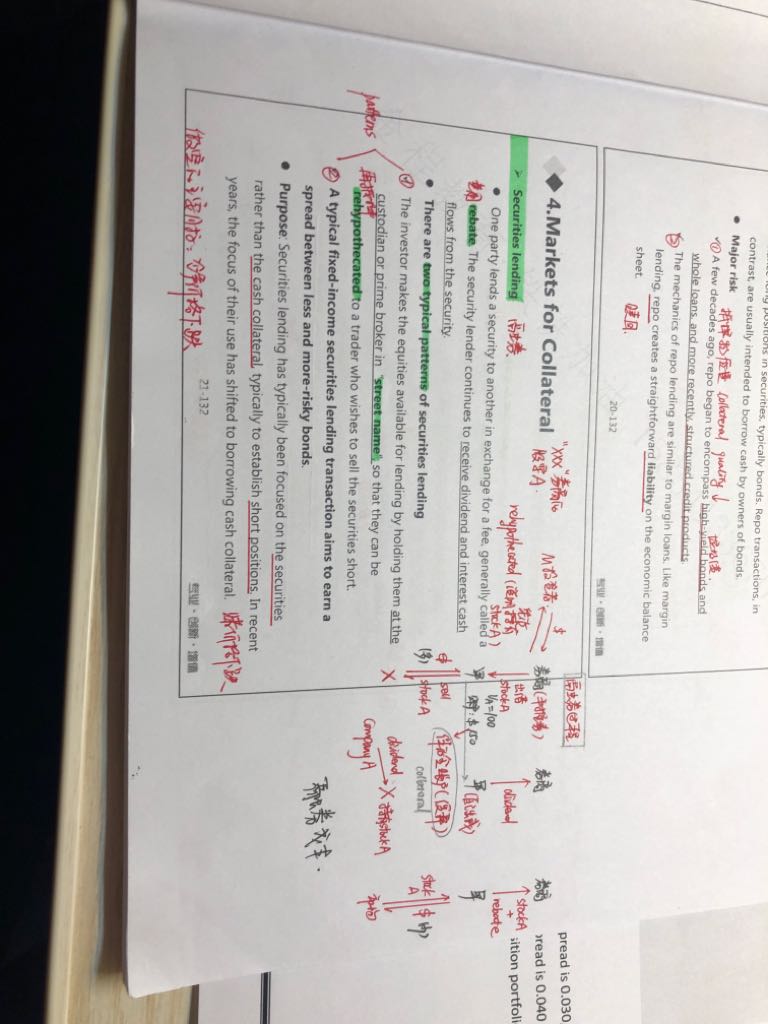 nance long positions in securities, typically bonds. Repo transactions, in
contrast, are usually intended to borrow cash by owners of bonds.
● Major risk
✓① A few decades ago, repo began to encompass high-yield bonds and
whole loans, and more recently, structured credit products.
collateral quality ↓
② The mechanics of repo lending are similar to margin loans. Like margin
lending, repo creates a straightforward liability on the economic balance
sheet.
20-132
专业·创新·增值
◆ 4.Markets for Collateral
"XXX"券商for
股票A.
➢ Securities lending
● One party lends a security to another in exchange for a fee, generally called a
rebate. The security lender continues to receive dividend and interest cash
flows from the security.
● There are two typical patterns of securities lending
patterns
① The investor makes the equities available for lending by holding them at the
custodian or prime broker in "street name" so that they can be
再抵押
rehypothecated to a trader who wishes to sell the securities short.
② A typical fixed-income securities lending transaction aims to earn a
spread between less and more-risky bonds.
● Purpose: Securities lending has typically been focused on the securities
rather than the cash collateral, typically to establish short positions. In recent
years, the focus of their use has shifted to borrowing cash collateral.
21-132
专业·创新·增值
rehypothecated
stock A)
M投资者
$
融券过程
券商
stock A
V₀=100
甲
$
sell
stock A
($)
X
券商
dividend
甲
保证金账户
collateral
dividend
Company A
X 持有stock A
券商
stock A
+
rebate
甲
stock
A
$
市场
融券成本.
pread is 0.030
pread is 0.040
sition portfoli